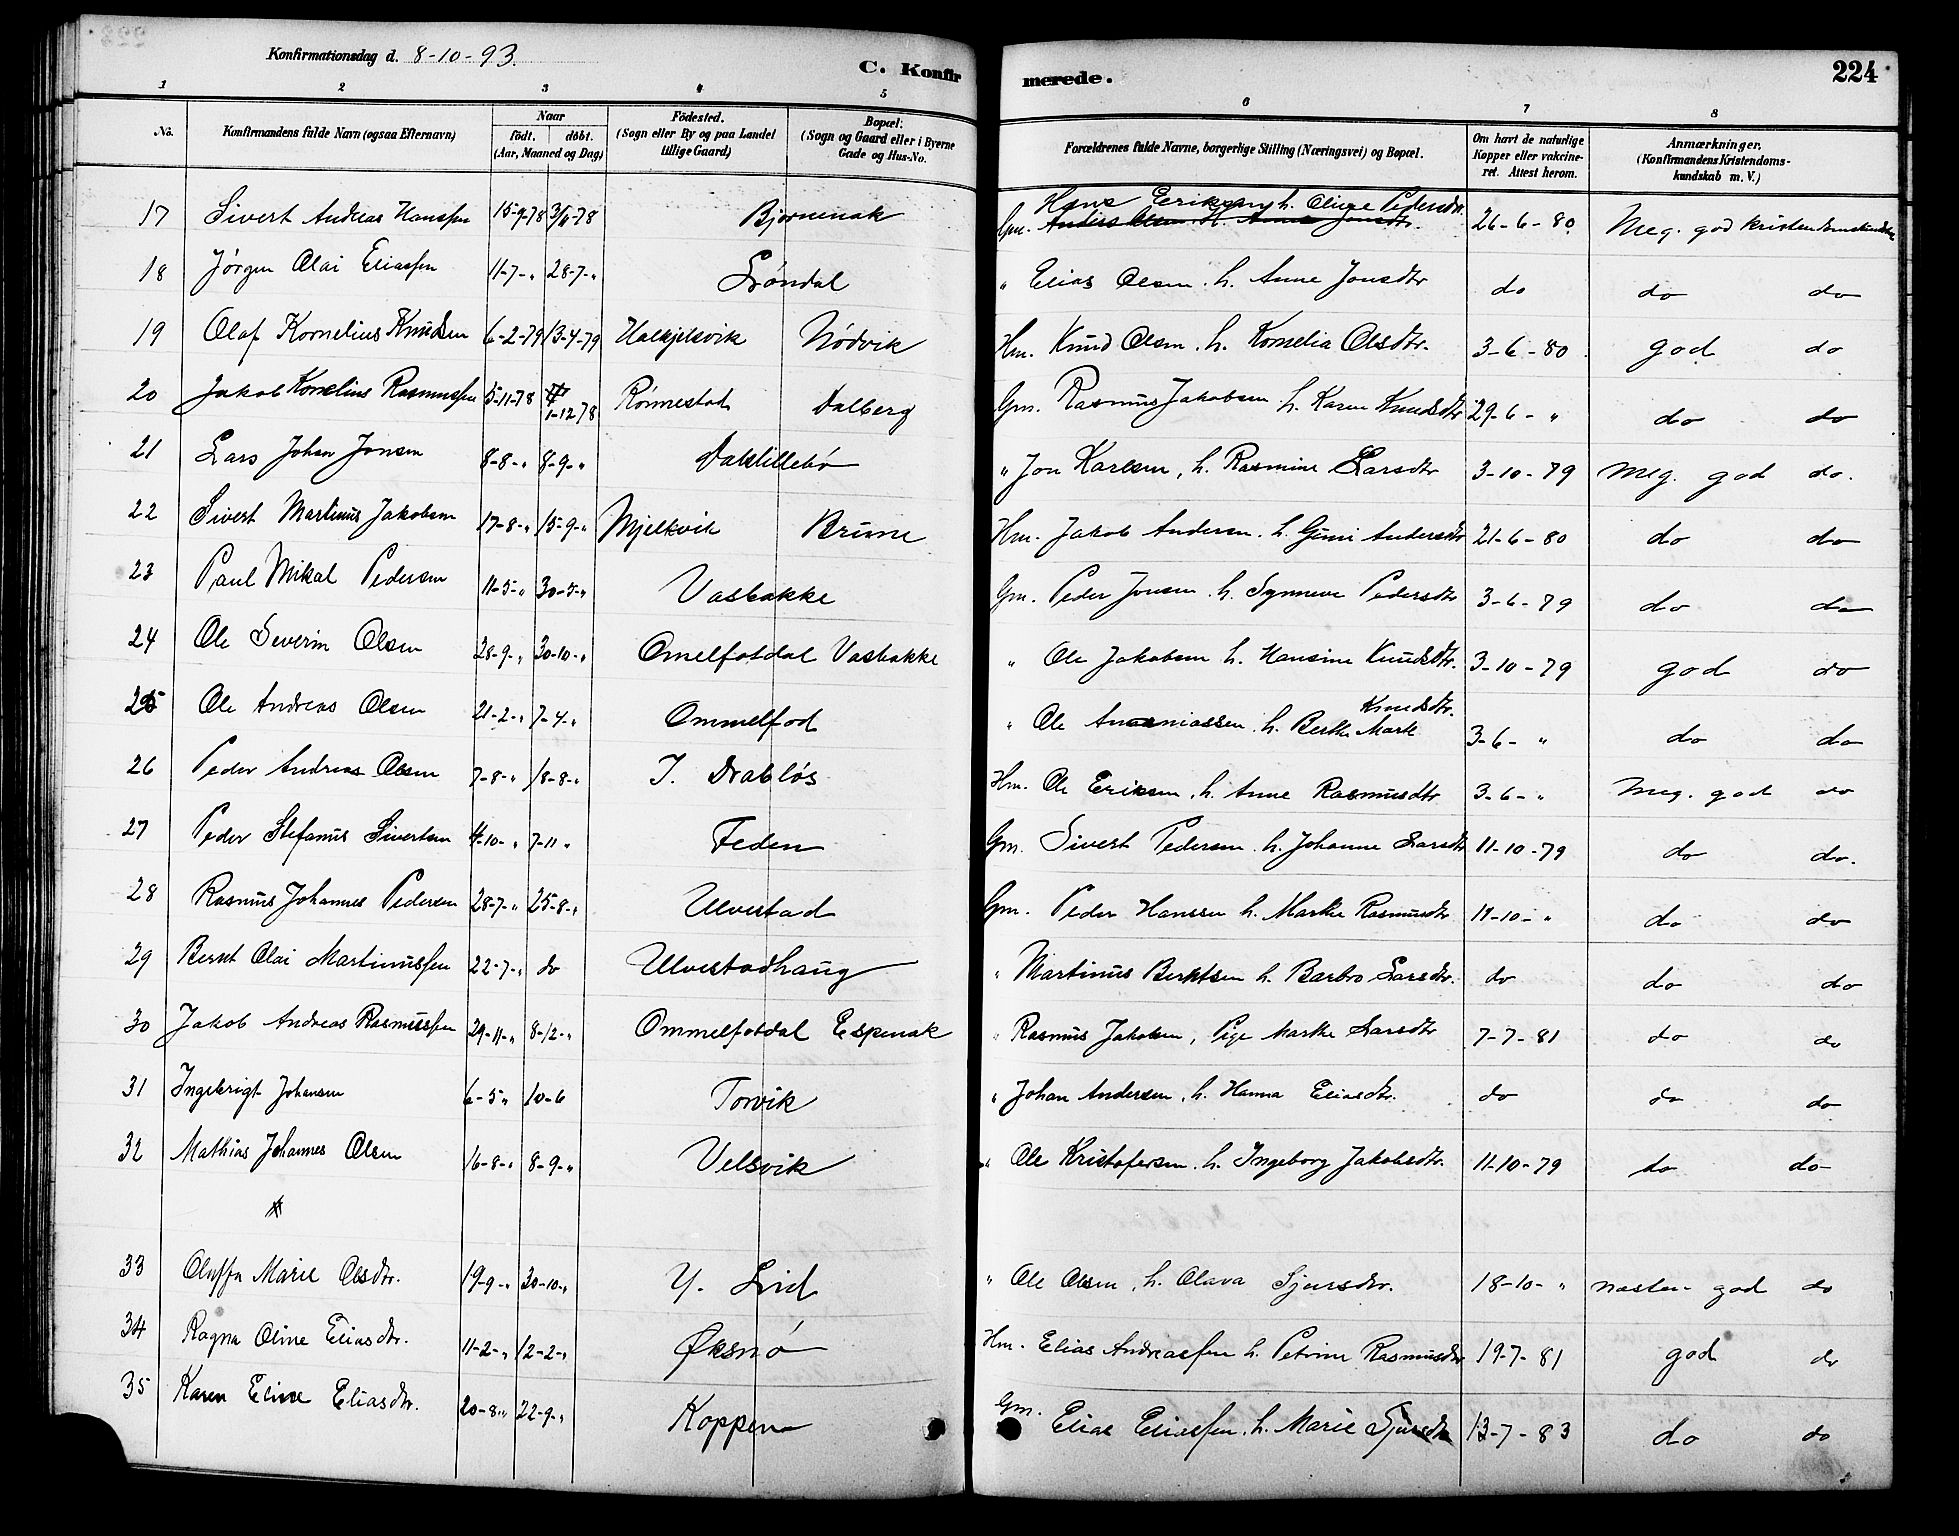 Konfirmationsdag d. 8-10-93.
C. Konfirmerede.
224
1 2 3 4 5 6 7 8
No. Konfirmandens fulde Navn (ogsaa Efternavn) Naar födt. döbt. (Aar, Maaned og Dag) Födested. (Sogn eller By og paa Landet tillige Gaard) Bopæl. (Sogn og Gaard eller i Byerne Gade og Hus-No. Forældrenes fulde Navne, borgerlige Stilling (Næringsvei) og Bopæl. Om havt de naturlige Kopper eller vakcineret. Attest herom. Anmærkninger. (Konfirmandens Kristendomskundskab m. V.)
17 Sivert Andreas Hanssen 15-9-78 3/11-78 Bjørnenak Gm. Hans Eriksen h. Oline Pedersdtr. 26-6-80 Meg. god kristendomskundskab
18 Jörgen Olai Eliassen 11-7-" 28-7-" Lröndal " Elias Olsen. h. Anne Jonsdtr do do do
19 Olaf Kornelius Knudsen 6-2-79 13-4-79 Halkjelsvik Nödvik Hm. Knud Olsen. h. Kornelia Olsdtr. 3-6-80 god do
20 Jakob Kornelius Rasmussen 5-11-78 1-12 78 Rönnestad Dalberg Gm. Rasmus Jakobsen. h. Karen Knudsdtr 29-6-" do do
21 Lars Johan Jonsen 8-8-" 8-9-" Dalstillebö " Jon Karlsen, h. Rasmine Larsdtr 3-10-79 Meg. god do.
22 Sivert Martinus Jakobsen 17-8-" 15-9-" Mjelkvik Brune Hm. Jakob Andersen. h. Guni Andersdtr 21-6-80 do do
23 Paul Mikal Pedersen 11-5-" 30-5-" Vasbakke Gm. Peder Jonsen. h. Synneve Pedersdtr 3-6-79 do do
24 Ole Severin Olsen 28-9-" 30-10-" Omelfotdal Vasbakke " Ole Jakobsen h. Hansine Knudsdtr. 3-10-79 god do
25 Ole Andreas Olsen 21-2-" 7-4-" Ommelfod " Ole Ananiassen. h. Berthe Marte Knudsdtr. 3-6-" do do
26 Peder Andreas Olsen 7-8-" 18-8-" I. Drabløs Hm. Ole Eriksen. h. Anne Rasmusdtr 3-6-" Meg. god do
27 Peder Stefanus Sivertsen 4-10-" 7-11 " Feden Gm. Sivert Pedersen. h. Johanne Larsdtr 11-10-79 do do.
28 Rasmus Johannes Pedersen 28-7-" 25-8-" Ulvestad Gm. Peder Hanssen h. Marthe Rasmusdtr. 11-10-" do do
29 Bernt Olai Martinussen 22-7-" do Ulvestadhaug " Martinus Berntsen h. Barbro Larsdtr. do do do
30 Jakob Andreas Rasmussen 29-11-" 8-12-" Ommelfotdal Espenak " Rasmus Jakobsen, Pige Marthe Larsdtr 7-7-81 do do
31 Ingebrigt Johansen 6-5" 10-6 Torvik " Johan Andersen, h. Hanna Eliasdtr. do do do
32 Mathias Johannes Olsen 16-8-" 8-9-" Velsvik " Ole Kristofersen. h. Ingeborg Jakobsdtr. 11-10-79 do do
33 Oluffa Marie Olsdtr. 19-9-" 30-10-" Y. Lid " Ole Olsen, h. Olava Sjursdtr. 18-10-" næsten god do
34 Ragna Oline Eliasdtr. 11-2-" 12-2-" Øksnö Hm. Elias Andreassen h. Petrine Rasmusdtr 19-7-81 god do
35 Karen Eline Eliasdtr. 20-8-" 22-9-" Koppen Gm. Elias Eliassen. h. Marie Sjursdtr 13-7-83 do do